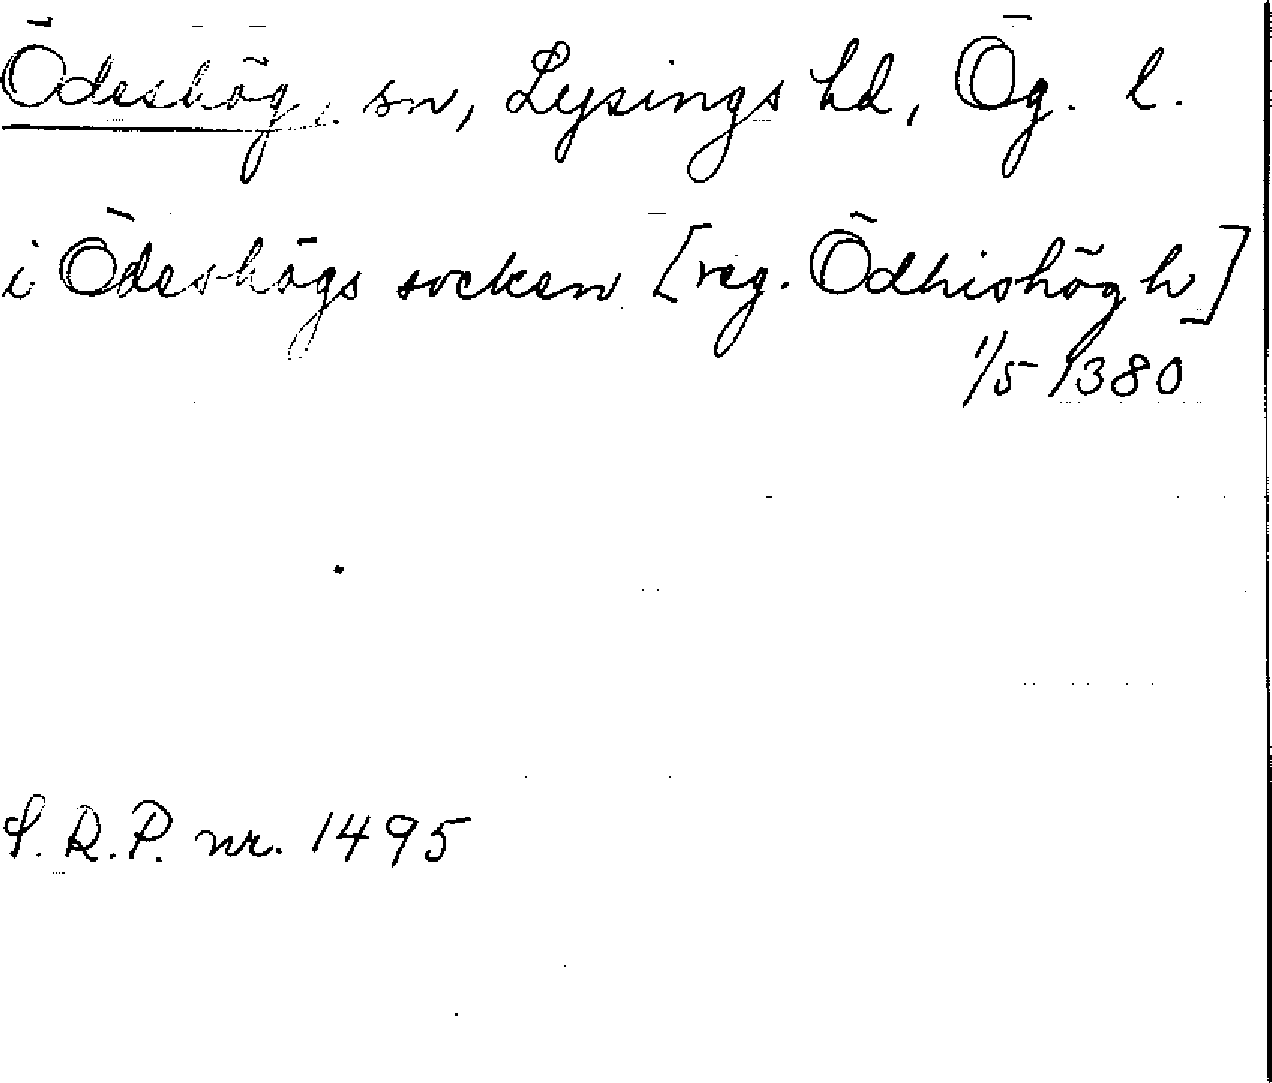 Ödeshög, sn, Lysings hd, Ög. l.
i Ödeshögs socken [reg. Ödhishögh]
1/5 1380
S.R.P. nr. 1495